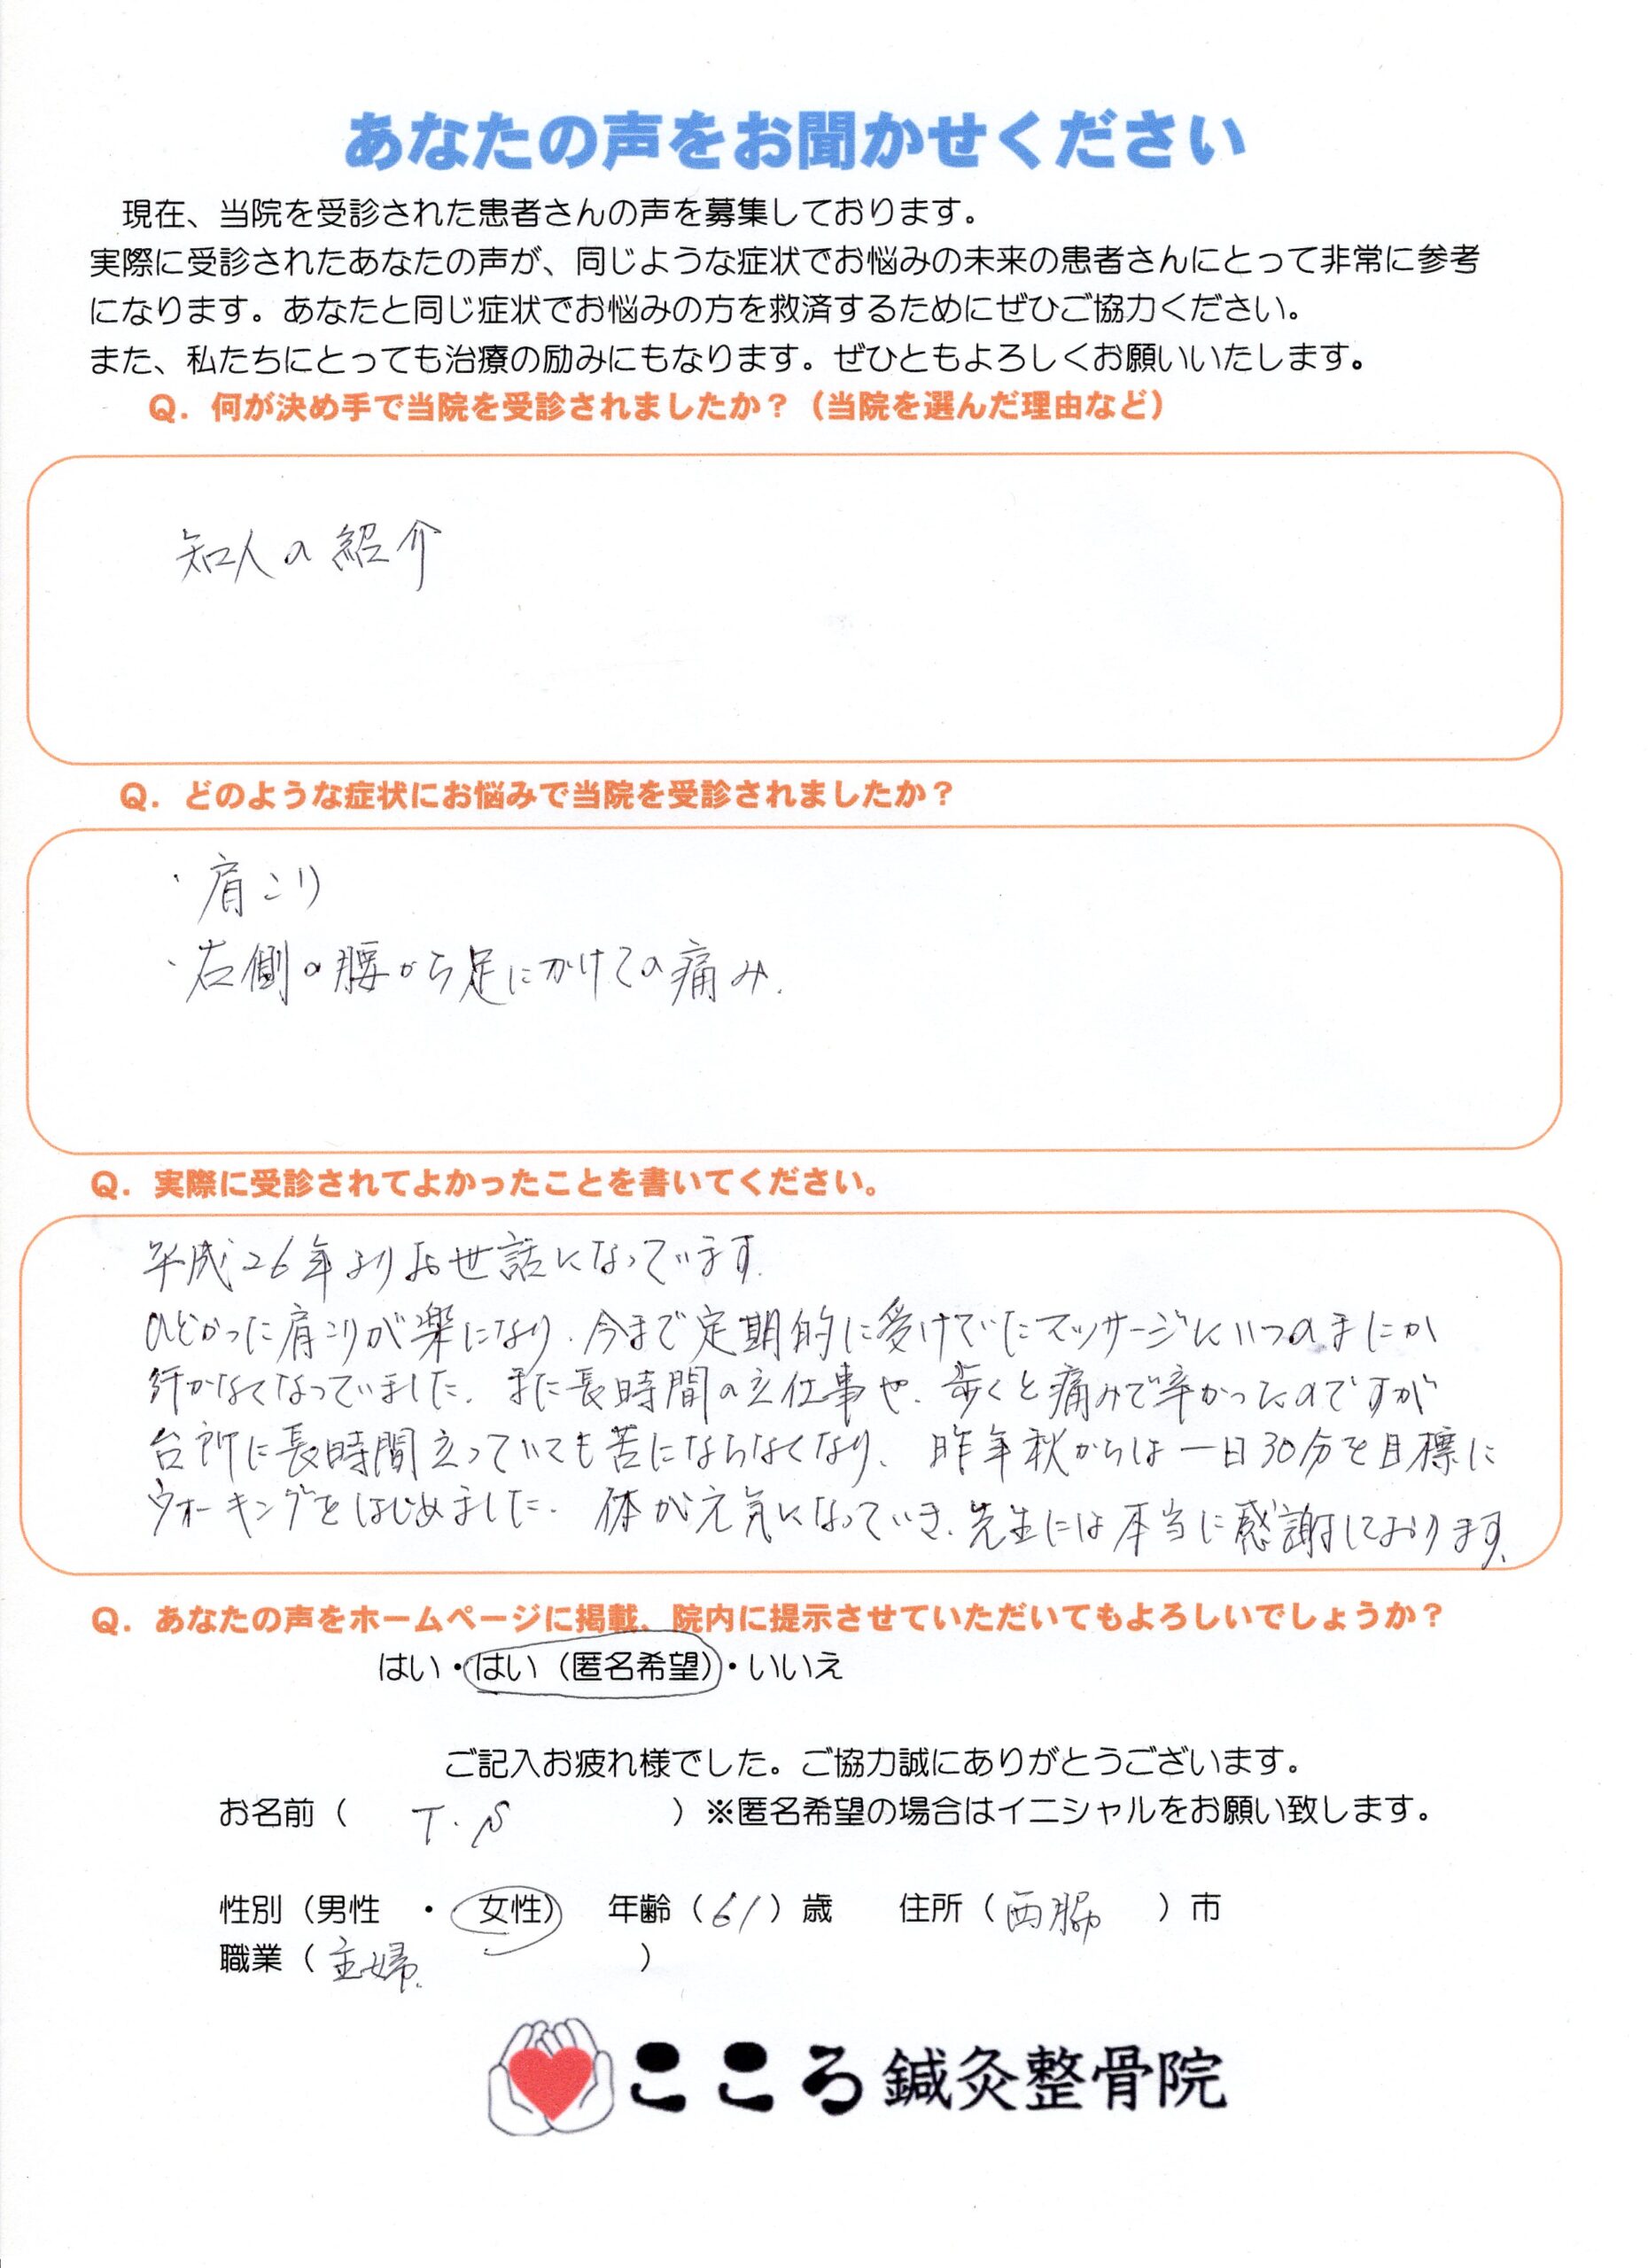 あなたの声をお聞かせください
現在、当院を受診された患者さんの声を募集しております。
実際に受診されたあなたの声が、同じような症状でお悩みの未来の患者さんにとって非常に参考
になります。あなたと同じ症状でお悩みの方を救済するためにぜひご協力ください。
また、私たちにとっても治療の励みにもなります。ぜひともよろしくお願いいたします。
Q. 何が決め手で当院を受診されましたか？（当院を選んだ理由など）
知人の紹介
Q. どのような症状にお悩みで当院を受診されましたか？
・肩こり
・右側の腰から足にかけての痛み.
Q. 実際に受診されてよかったことを書いてください。
平成26年よりお世話になっています.
ひどかった肩こりが楽になり、今まで定期的に受けていたマッサージにいつのまにか
行かなくなっていました. また長時間の立仕事や、歩くと痛みで辛かったのですが
台所に長時間立っていても苦にならなくなり、昨年秋からは一日30分を目標に
ウォーキングをはじめました. 体が元気になっていき、先生には本当に感謝しております.
Q. あなたの声をホームページに掲載、院内に提示させていただいてもよろしいでしょうか？
はい・はい（匿名希望）・いいえ
ご記入お疲れ様でした。ご協力誠にありがとうございます。
お名前（ T.S ）※匿名希望の場合はイニシャルをお願い致します。
性別（男性 ・ 女性） 年齢（61）歳 住所（西脇 ）市
職業（主婦. ）
こころ鍼灸整骨院